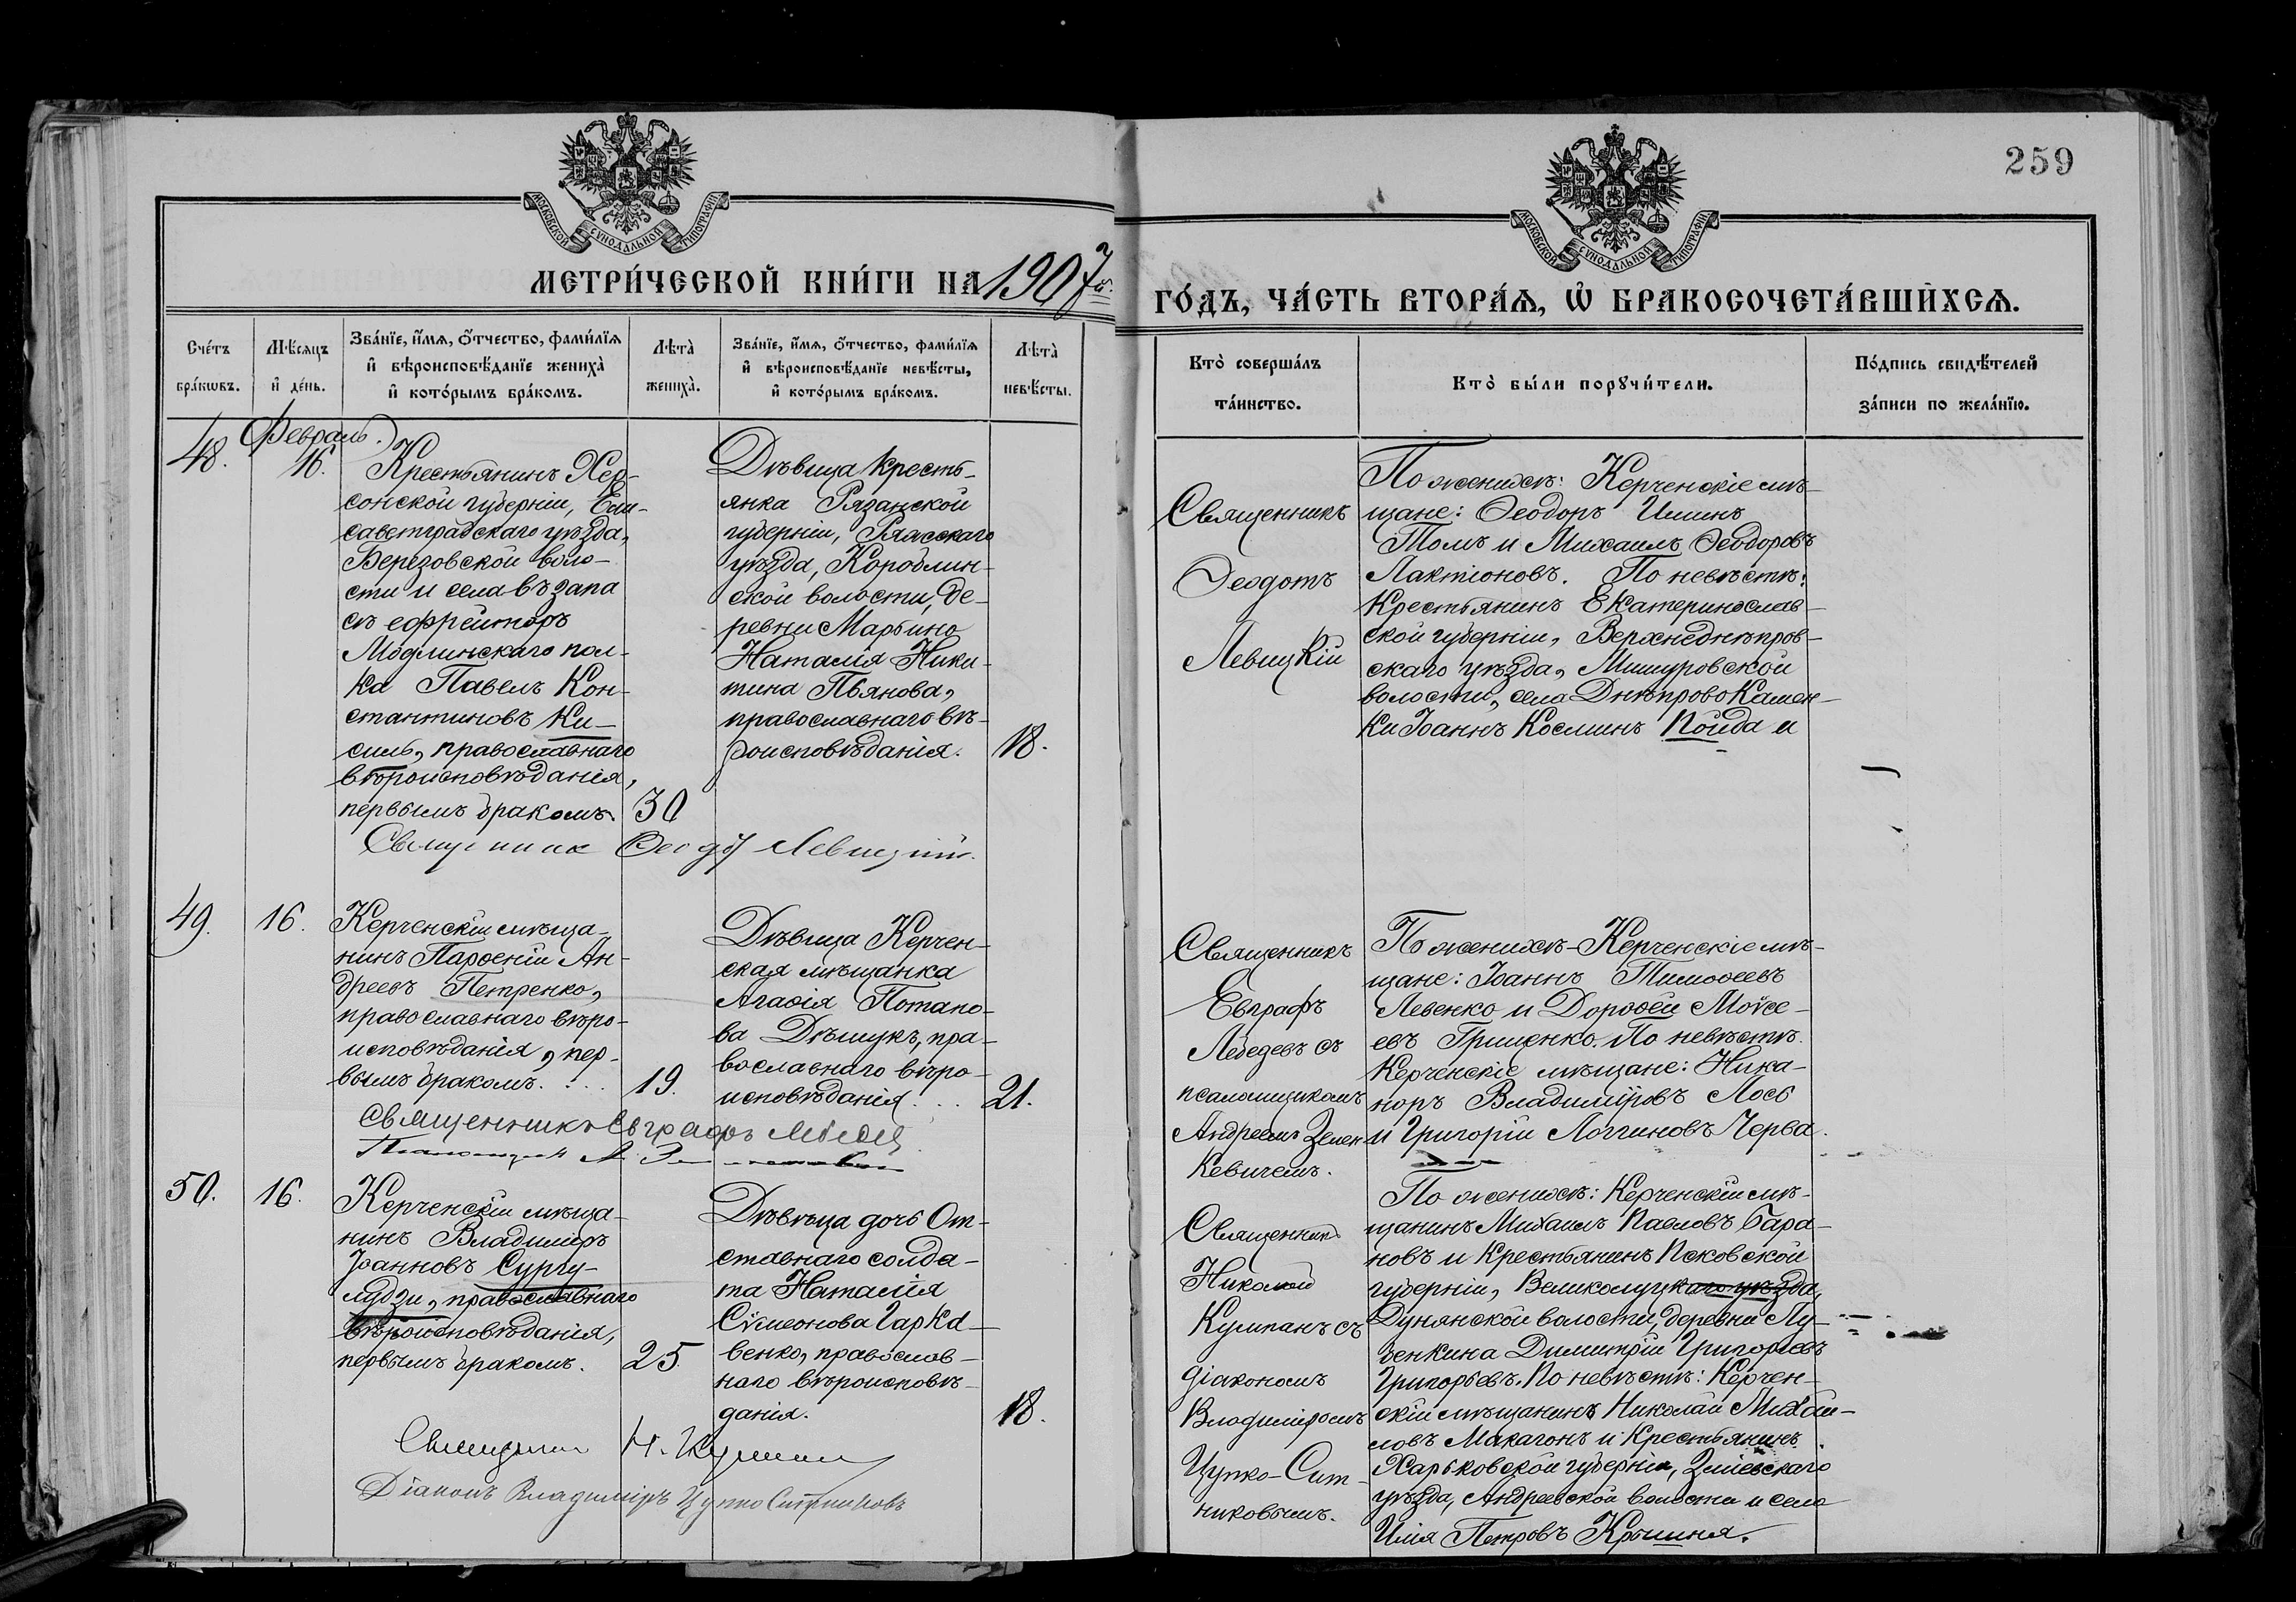 259
МОСКОВСКОЙ СѴНОДАЛЬНОЙ ТИПОГРАФІИ
МОСКОВСКОЙ СѴНОДАЛЬНОЙ ТИПОГРАФІИ
МЕТРИ́ЧЕСКОЙ КНИ́ГИ НА 1907й.
ГО́ДЪ, ЧА́СТЬ ВТОРА́Ѧ, Ѽ БРАКОСОЧЕТА́ВШИХСѦ.
Сче́тъ бра́кѡвъ.
Мѣ́сяцъ и҆ де́нь.
Зва́нїе, и҆́мѧ, ѻ҆́тчество, фами́лїѧ
и҆ вѣроисповѣ́данїе жениха̀
и҆ кото́рымъ бра́комъ.
Лѣта̀ жениха̀.
Зва́нїе, и҆́мѧ, ѻ҆́тчество, фами́лїѧ
и҆ вѣроисповѣ́данїе невѣ́сты,
и҆ кото́рымъ бра́комъ.
Лѣта̀ невѣ́сты.
Кто̀ соверша́лъ
та́инство.
Кто̀ бы́ли порꙋчи́тели.
По́дпись свидѣ́телей
за́писи по жела́нїю.
48.
Февраль.
16.
Крестьянинъ Хер-
сонской губерніи, Ели-
саветградскаго уѣзда,
Березовской воло-
сти и села въ запа
съ ефрейторъ
Модлинскаго пол-
ка Павелъ Кон-
стантиновъ Ки-
силь, православнаго
вѣроисповѣданія,
первымъ бракомъ.
30
Дѣвица кресть-
янка Рязанской
губерніи, Ряжскаго
уѣзда, Кораблин-
ской волости, де-
ревни Марьино
Наталія Ники-
тина Пьянова,
православнаго вѣ-
роисповѣданія.
18.
Священникъ
Ѳеодотъ
Левицкій
По женихѣ: Керченскіе мѣ-
щане: Ѳеодоръ Иминъ
Томъ и Михаилъ Ѳеодоровъ
Лактіоновъ. По невѣстѣ:
Крестьянинъ Екатеринослав-
ской губерніи, Верхнеднѣпров-
скаго уѣзда, Мишуровской
волости, села Днѣпрово Камен-
ки Іоаннъ Косминъ Пойда и
Священник Ѳеодот Левицкій.
49.
16.
Керченскій мѣща-
нинъ Парѳеній Ан-
дреевъ Петренко,
православнаго вѣро-
исповѣданія, пер-
вымъ бракомъ.
19.
Дѣвица Керчен-
ская мѣщанка
Агаѳія Потапо-
ва Дѣмукъ, пра-
вославнаго вѣро-
исповѣданія.
21.
Священникъ
Евграфъ
Лебедевъ съ
псаломщикомъ
Андреемъ Зелен
кевичемъ.
По женихѣ - Керченскіе мѣ-
щане: Іоаннъ Тимоѳеевъ
Левенко и Дороѳей Моѵсе-
евъ Грищенко. По невѣстѣ.
Керченскіе мѣщане: Ника-
норъ Владиміровъ Лось
и Григорій Логгиновъ Черва.
Священникъ Евграфъ Лебедев
50.
16.
Керченскій мѣща-
нинъ Владиміръ
Іоанновъ Сургу-
лудзи, православнаго
вѣроисповѣданія,
первымъ бракомъ.
25
Дѣвица дочь От-
ставнаго солда-
та Наталія
Сѵмеонова Гарка-
венко, православ-
наго вѣроисповѣ-
данія.
18.
Священник
Николай
Кумпанъ съ
діакономъ
Владиміромъ
Цупко-Сит-
никовымъ.
По женихѣ: Керченскій мѣ-
щанинъ Михаилъ Павловъ Бара-
новъ и Крестьянинъ Псковской
губерніи, Великолуцкаго уѣзда,
Дунянской волости, деревни Лу-
венкина Димитрій Григорьевъ
Григорьевъ. По невѣстѣ: Керчен-
скій мѣщанинъ Николай Михай-
ловъ Макагонъ и Крестьянинъ
Харьковской губерніи, Зміевскаго
уѣзда, Андреевской волости и села
Илія Петровъ Крышня.
Священник Н. Кумпан
Діаконъ Владиміръ Цупко Ситниковъ